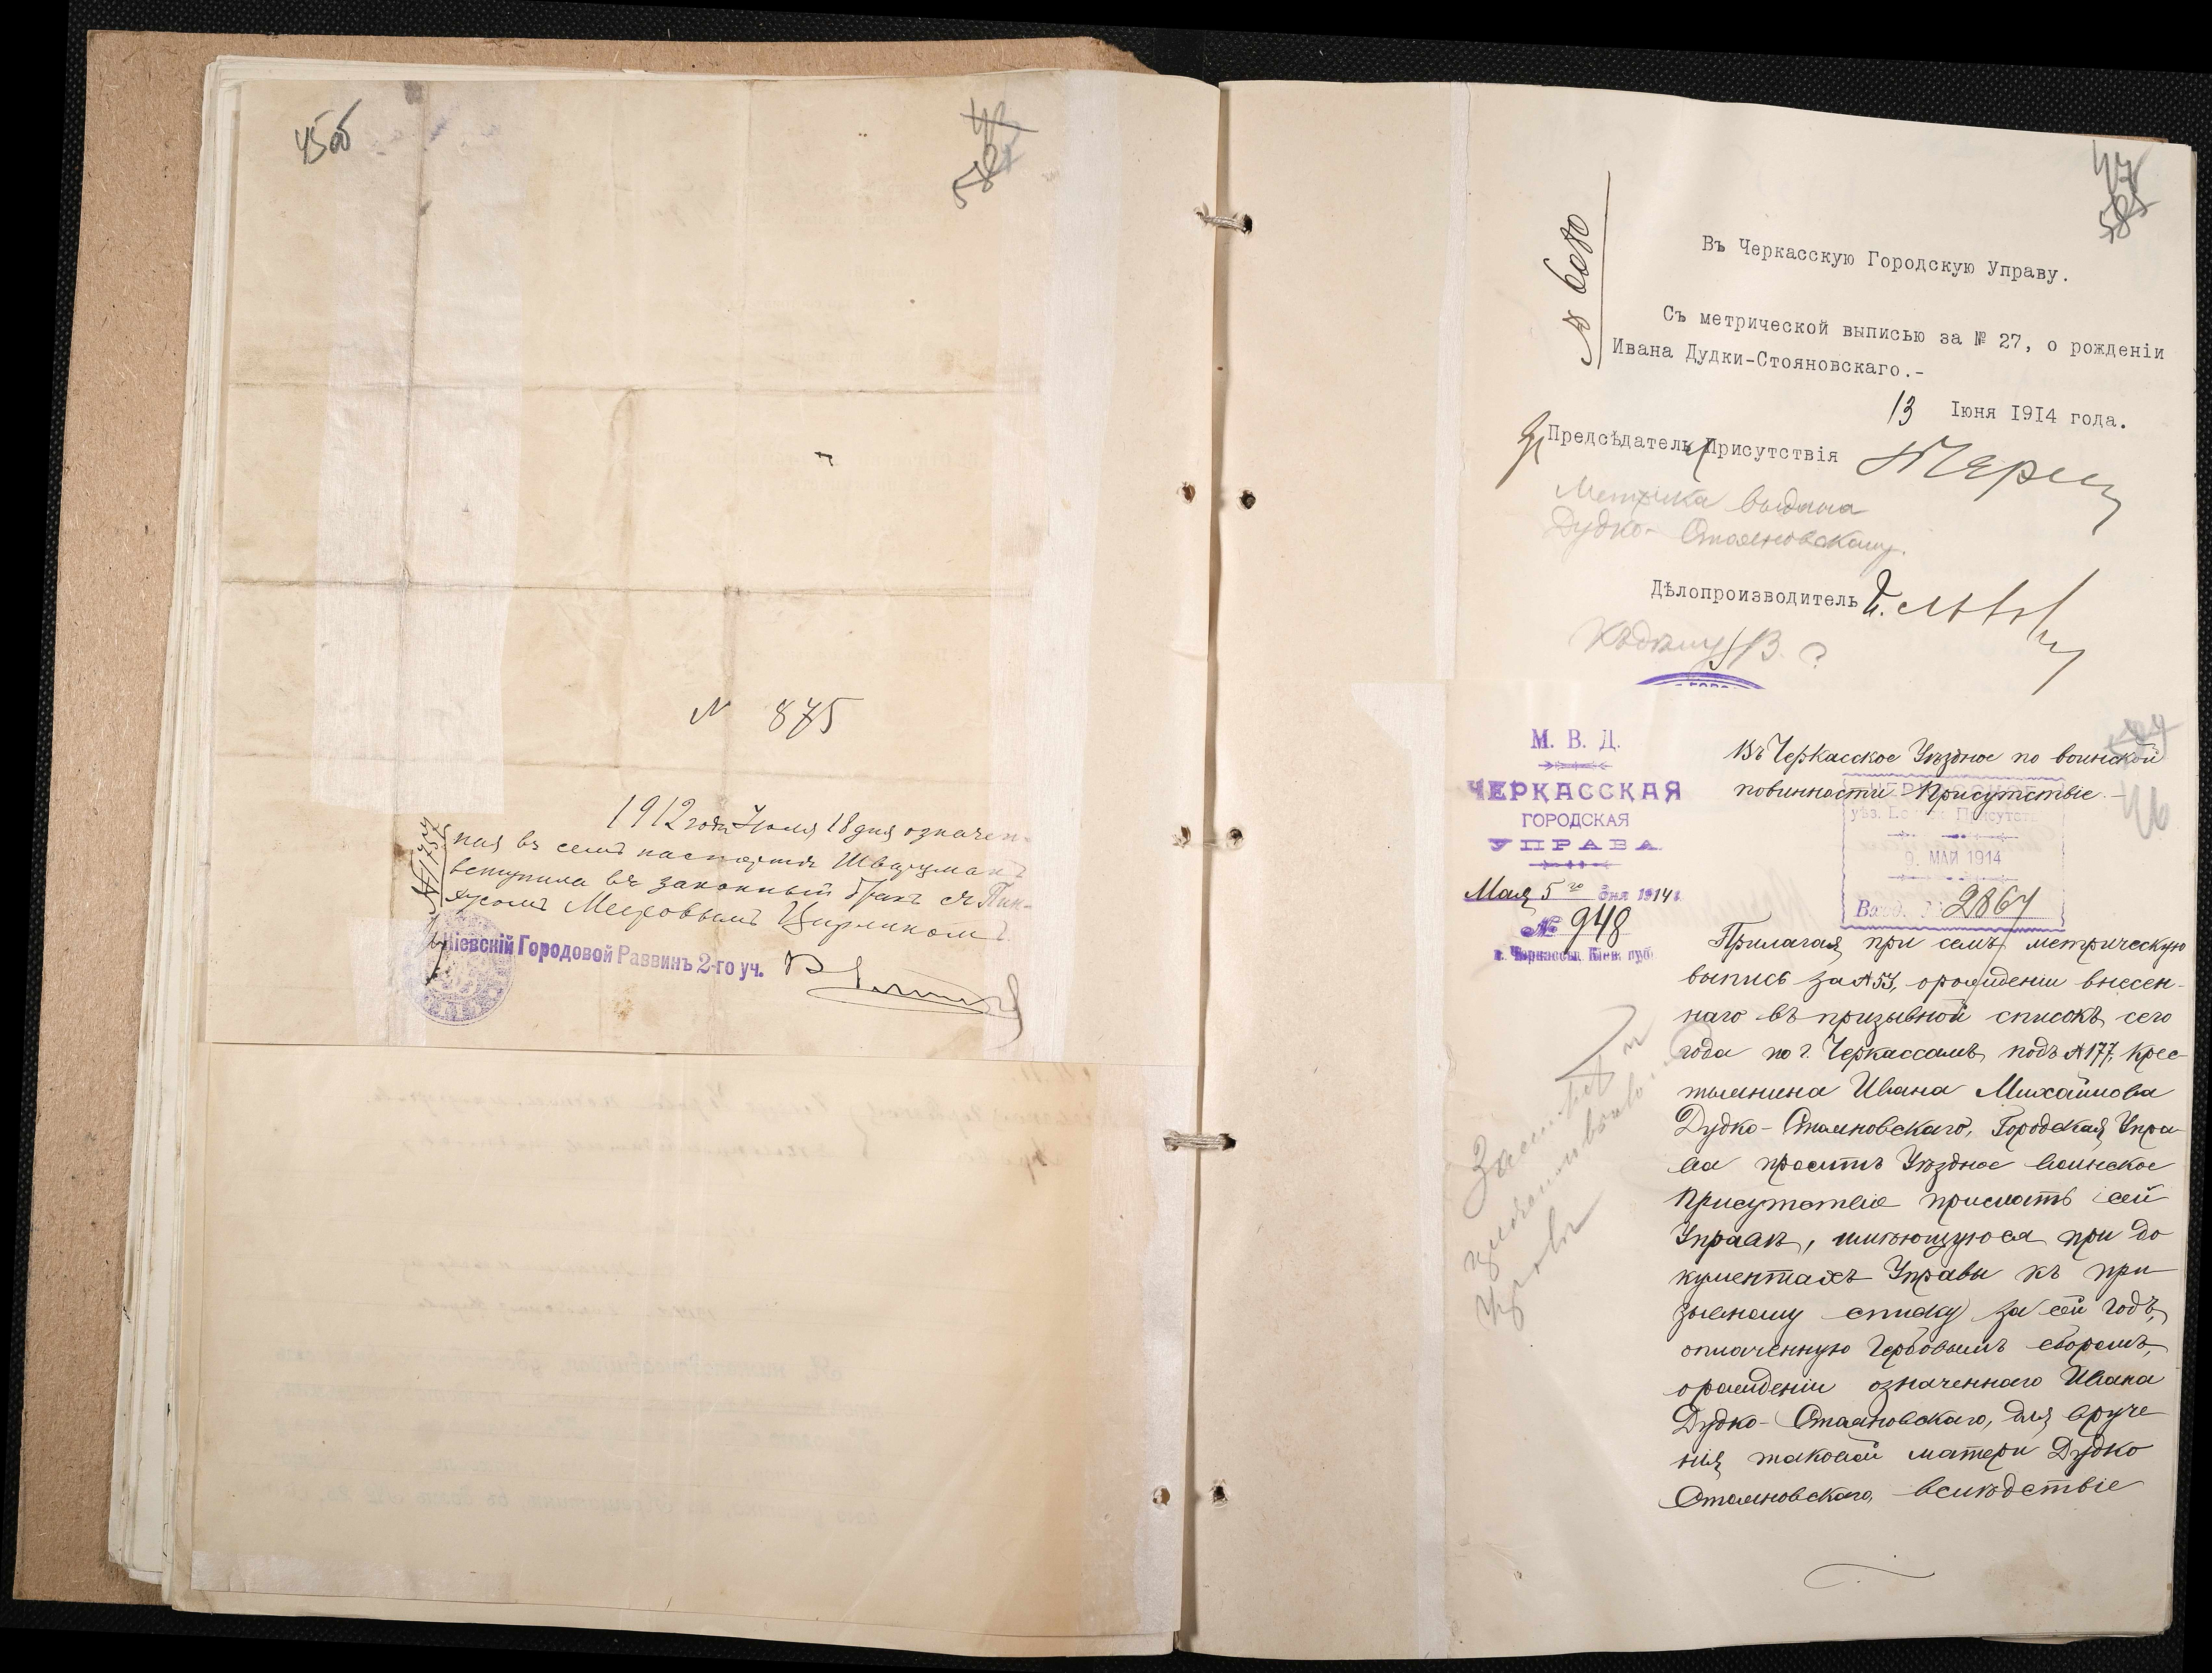 45об
N 875
1912 года Іюля 18 дня означен-
ная въ семъ паспортѣ Шварцманъ
вступила въ законный бракъ съ Пин-
хусомъ Мееровымъ
Кіевскій Городовой Раввинъ 2-го уч.
47
№ 6080
Въ Черкасскую Городскую Управу.
Съ метрической выписью за № 27, о рожденіи
Ивана Дудки-Стояновскаго.-
13 Іюня 1914 года.
Предсѣдатель Присутствія
Метрика выдана
Дудко-Стояновскому.
Дѣлопроизводитель
Къ дѣлу
М. В. Д.
ЧЕРКАССКАЯ
ГОРОДСКАЯ
УПРАВА
Мая 5 го дня 1914 г.
№ 948
г. Черкассы, Кіев. губ.
Въ Черкасское Уѣздное по воинской
повинности Присутствіе.-
46
уѣз. Воинск. Присутств
9. МАЙ 1914
Вход. № 2867
Прилагая при семъ метрическую
выпись за № 53, о рожденіи внесен-
наго въ призывной списокъ сего
года по г. Черкассамъ подъ № 177, крес-
тьянина Ивана Михайлова
Дудко-Стояновскаго, Городская Упра-
ва проситъ Уѣздное Воинское
Присутствіе прислать сей
Управѣ, имѣющуюся при до
кументахъ Управы къ при
зывному списку за сей годъ,
оплаченную гербовымъ сборомъ,
о рожденіи означеннаго Ивана
Дудко-Стояновскаго, для вруче
нія таковой матери Дудко
Стояновскаго, вслѣдствіе